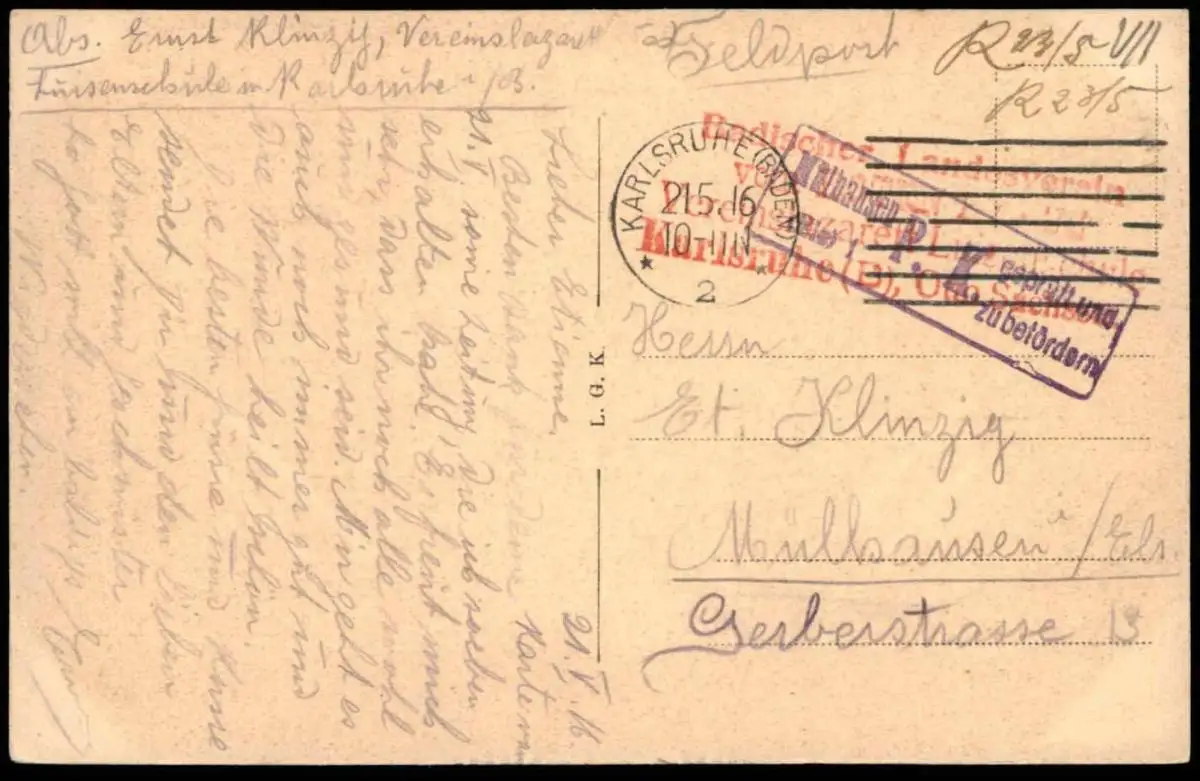 Abs. Ernst Klinzig, Vereinslazarett
Luisenschule in Karlsruhe i/B.
Feldpost
R 23/5 VII
R 23/5
Badischer Landesverein
Vereinslazarett Luisenschule
Karlsruhe (B), Otto Sachsstr.
KARLSRUHE (BADEN)
21.5.16
10-11N
* 2 *
Mülhausen
P. K.
geprüft und
zu befördern
Herrn
Et. Klinzig
Mülhausen /Els.
Gerberstrasse 13
L. G. K.
21. V. 16.
Lieber Etienne.
Besten Dank für deine Karte vom
21. V. sowie Zeitung, die ich soeben
erhalten habe. Es freut mich
sehr, dass ihr noch alle wohl
und ges und seid. Mir geht es
auch noch immer gut und
die Wunde heilt schön.
Die besten Grüsse und Küsse
sendet für und den lieben
Eltern und
so Gott will an baldiges
Wiedersehen.